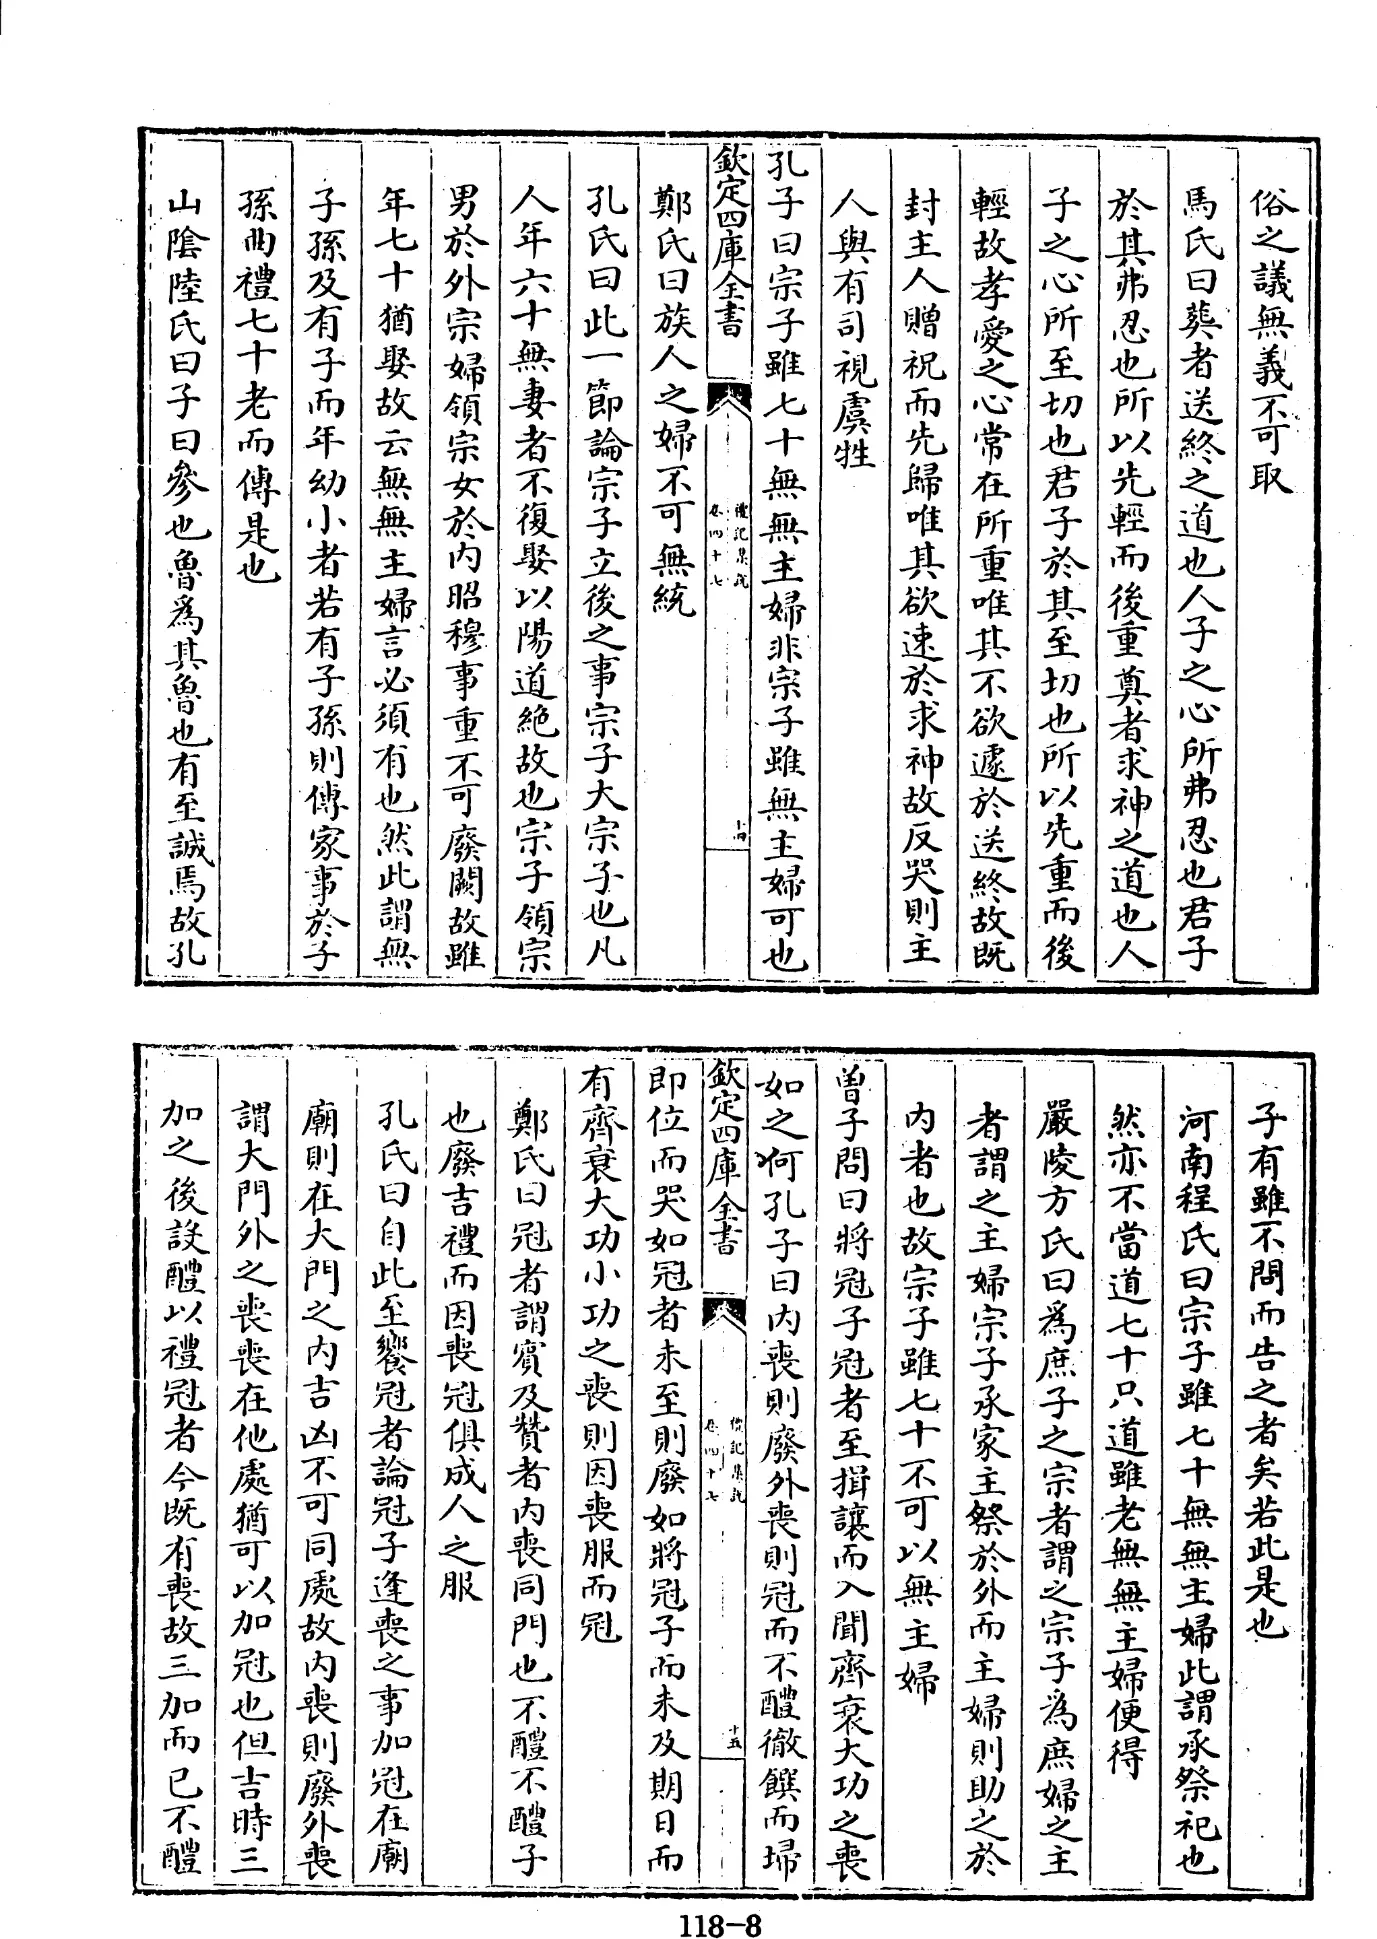 俗之議無義不可取
馬氏曰葬者送終之道也人子之心所弗忍也君子
於其弗忍也所以先輕而後重奠者求神之道也人
子之心所至切也君子於其至切也所以先重而後
輕故孝愛之心常在所重唯其不欲遽於送終故既
封主人贈祝而先歸唯其欲速於求神故反哭則主
人與有司視虞牲
孔子曰宗子雖七十無無主婦非宗子雖無主婦可也
欽定四庫全書
禮記集說
卷四十七
十四
鄭氏曰族人之婦不可無統
孔氏曰此一節論宗子立後之事宗子大宗子也凡
人年六十無妻者不復娶以陽道絶故也宗子領宗
男於外宗婦領宗女於内昭穆事重不可廢闕故雖
年七十猶娶故云無無主婦言必須有也然此謂無
子孫及有子而年幼小者若有子孫則傳家事於子
孫曲禮七十老而傳是也
山陰陸氏曰子曰參也魯爲其魯也有至誠焉故孔
子有雖不問而告之者矣若此是也
河南程氏曰宗子雖七十無無主婦此謂承祭祀也
然亦不當道七十只道雖老無無主婦便得
嚴陵方氏曰爲庶子之宗者謂之宗子爲庶婦之主
者謂之主婦宗子承家主祭於外而主婦則助之於
内者也故宗子雖七十不可以無主婦
曽子問曰將冠子冠者至揖讓而入聞齊衰大功之喪
如之何孔子曰内喪則廢外喪則冠而不醴徹饌而埽
欽定四庫全書
禮記集說
卷四十七
十五
即位而哭如冠者未至則廢如將冠子而未及期日而
有齊衰大功小功之喪則因喪服而冠
鄭氏曰冠者謂賓及贊者内喪同門也不醴不醴子
也廢吉禮而因喪冠俱成人之服
孔氏曰自此至饗冠者論冠子逢喪之事加冠在廟
廟則在大門之内吉凶不可同處故内喪則廢外喪
謂大門外之喪喪在他處猶可以加冠也但吉時三
加之後設醴以禮冠者今既有喪故三加而已不醴
118-8